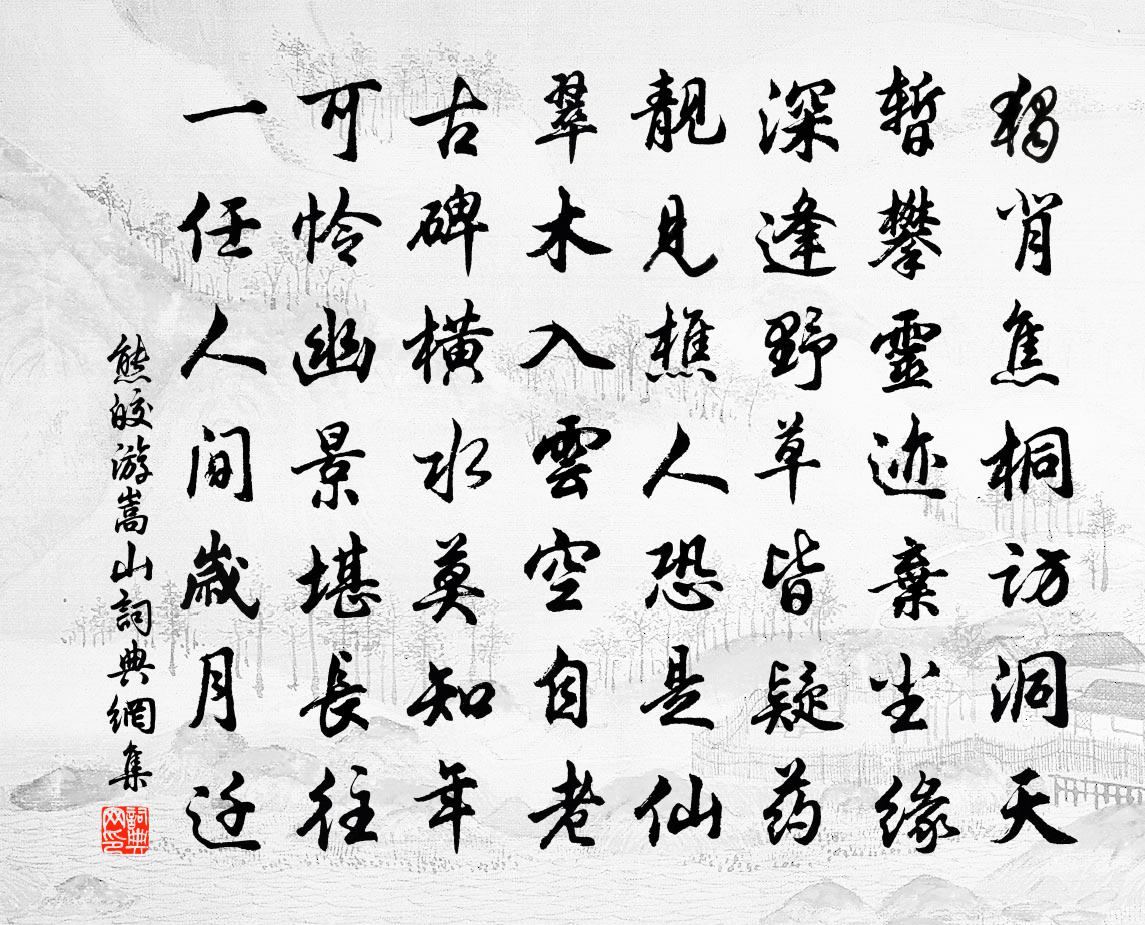 獨背焦桐訪洞天
暫攀靈迹棄尘緣
深逢野草皆疑药
靚見樵人恐是仙
翠木入雲空自老
古碑橫水莫知年
可怜幽景堪長往
一任人間歲月迁
熊皎游嵩山詞典網集
詞典网印